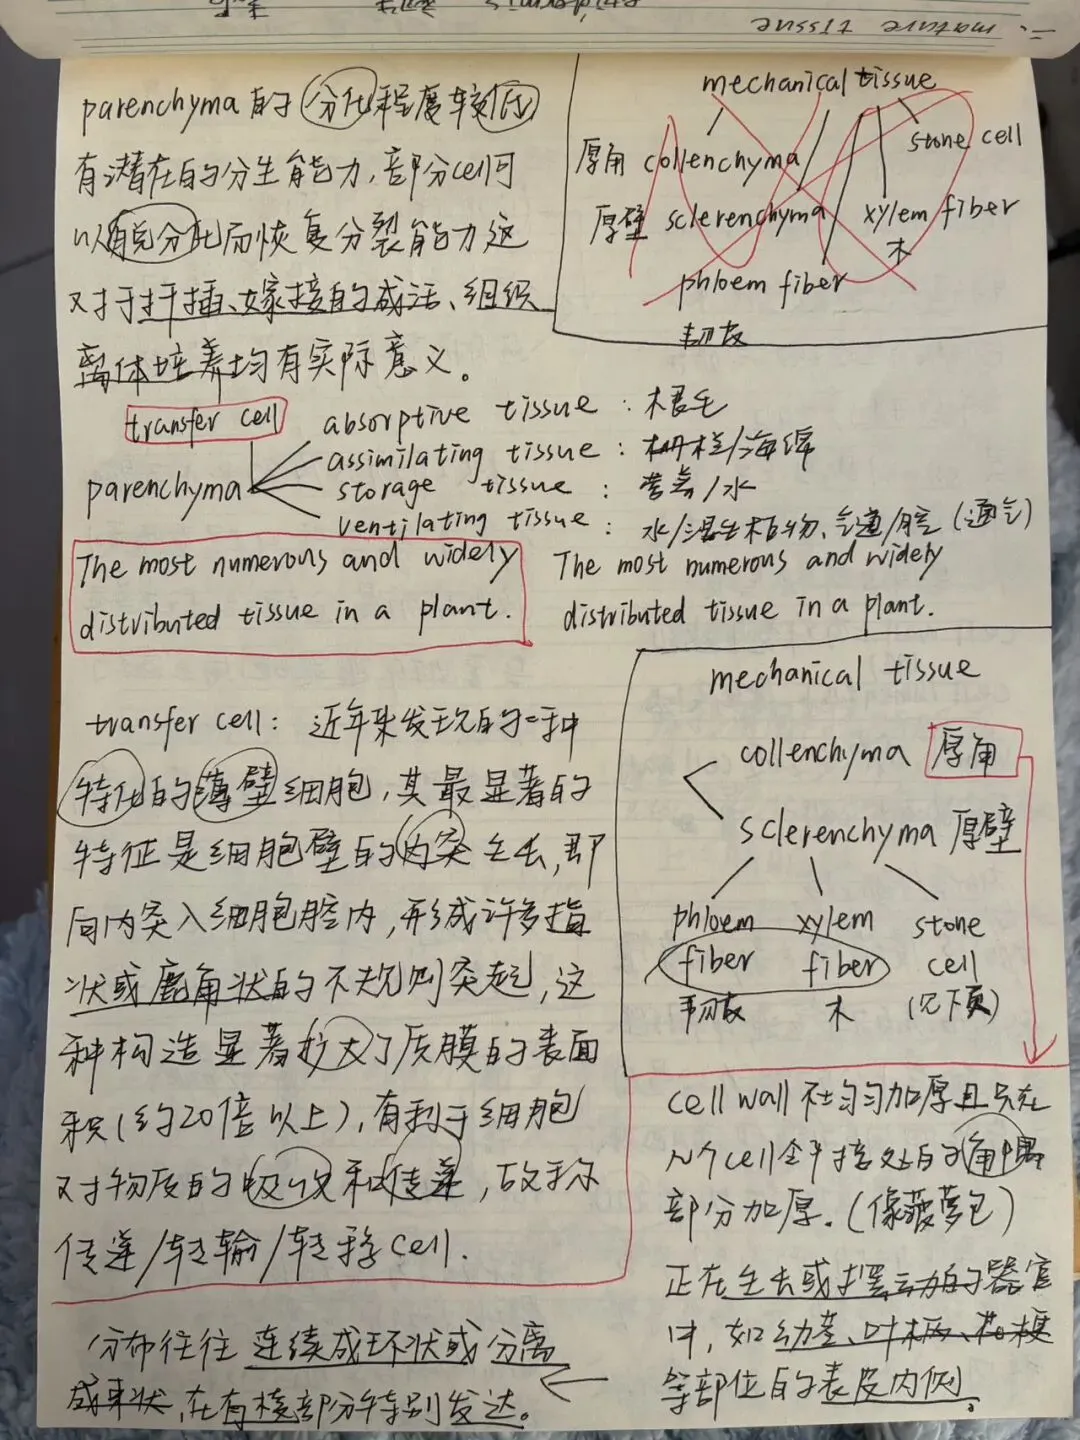 二. mature tissue
parenchyma的分化程度较低
有潜在的分生能力,部分cell可
以脱分化而恢复分裂能力这
对于扦插、嫁接的成活、组织
离体培养均有实际意义。
mechanical tissue
厚角 collenchyma
stone cell
厚壁 sclerenchyma
xylem fiber
木
phloem fiber
韧皮
transfer cell
parenchyma
absorptive tissue : 根毛
assimilating tissue : 栅栏/海绵
storage tissue : 营养/水
ventilating tissue : 水/湿生植物、气道/腔(通气)
The most numerous and widely
distributed tissue in a plant.
The most numerous and widely
distributed tissue in a plant.
transfer cell: 近年来发现的一种
特化的薄壁细胞,其最显著的
特征是细胞壁的内突生长,即
向内突入细胞腔内,形成许多指
状或鹿角状的不规则突起,这
种构造显著扩大了质膜的表面
积(约20倍以上),有利于细胞
对物质的吸收和传递,故称
传递/转输/转移cell.
mechanical tissue
collenchyma 厚角
sclerenchyma 厚壁
phloem xylem stone
fiber fiber cell
韧皮 木 (见下页)
cell wall 不均匀加厚且只在
几个cell邻接处的角隅
部分加厚.(像菠萝包)
正在生长或摆动的器官
中,如幼茎、叶柄、花梗
等部位的表皮内侧。
分布往往连续成环状或分离
成束状,在有棱部分特别发达。